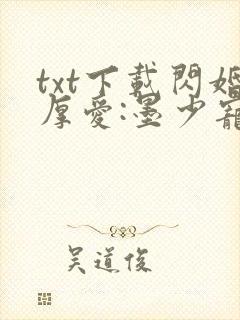 txt下載閃婚
厚愛:墨少寵
吳道俊